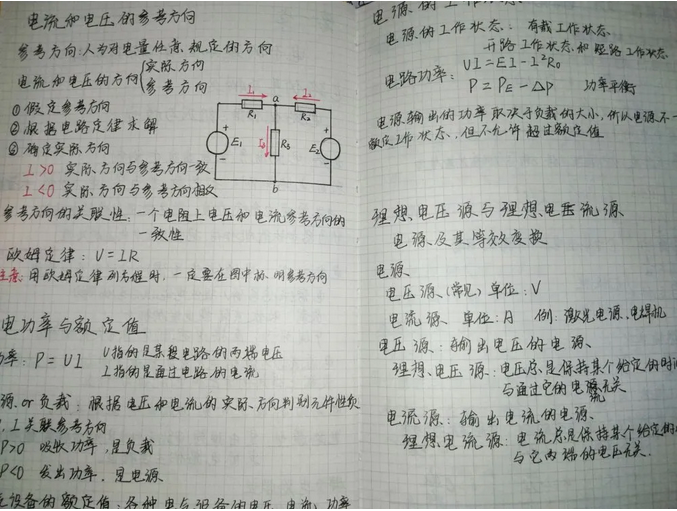 电流和电压的参考方向
参考方向:人为对电量任意规定的方向
电流和电压的方向{实际方向
参考方向
①假定参考方向
②根据电路定律求解
③确定实际方向
I>0 实际方向与参考方向一致
I<0 实际方向与参考方向相反
I₁
a
I₂
R₁
R₂
+
E₁
-
I₃
R₃
+
E₂
-
b
参考方向的关联性:一个电阻上电压和电流参考方向的
一致性
欧姆定律:U=IR
注意:用欧姆定律列方程时,一定要在图中标明参考方向
电功率与额定值
功率:P=UI U指的是某段电路的两端电压
I指的是通过电路的电流
源 or 负载:根据电压和电流的实际方向判别元件性质
,I关联参考方向
P>0 吸收功率,是负载
P<0 发出功率,是电源
设备的额定值:各种电气设备的电压、电流、功率
电源的工作
电源的工作状态:有载工作状态
开路工作状态和短路工作状态
电路功率:UI=EI-I²R₀
P=PE-ΔP 功率平衡
电源输出的功率取决于负载的大小,所以电源不一
额定工作状态,但不允许超过额定值
理想电压源与理想电流源
电源及其等效变换
电源
电压源(常见)单位:V
电流源 单位:A 例:激光电源、电焊机
电压源:输出电压的电源
理想电压源:电压总是保持某个给定的时间
与通过它的电流无关
电流源:输出电流的电源
理想电流源:电流总是保持某个给定的
与它两端的电压无关.